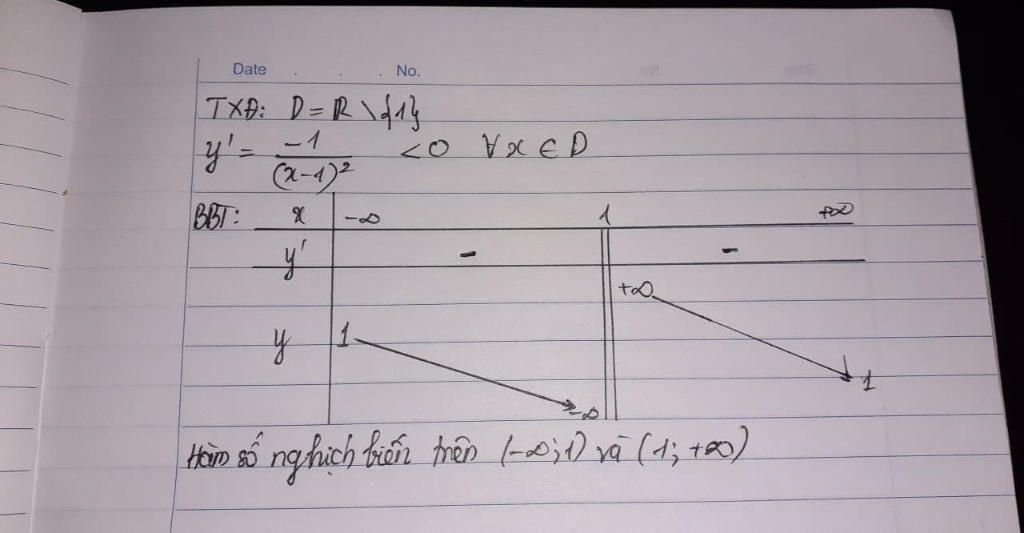 Date . . . No.
TXĐ: D = R \ {1}
y' = -1/(x-1)² <0 ∀x ∈ D
BBT: x -∞ 1 +∞
y' - -
+∞
y 1
1
-∞
Hàm số nghịch biến trên (-∞;1) và (1; +∞)